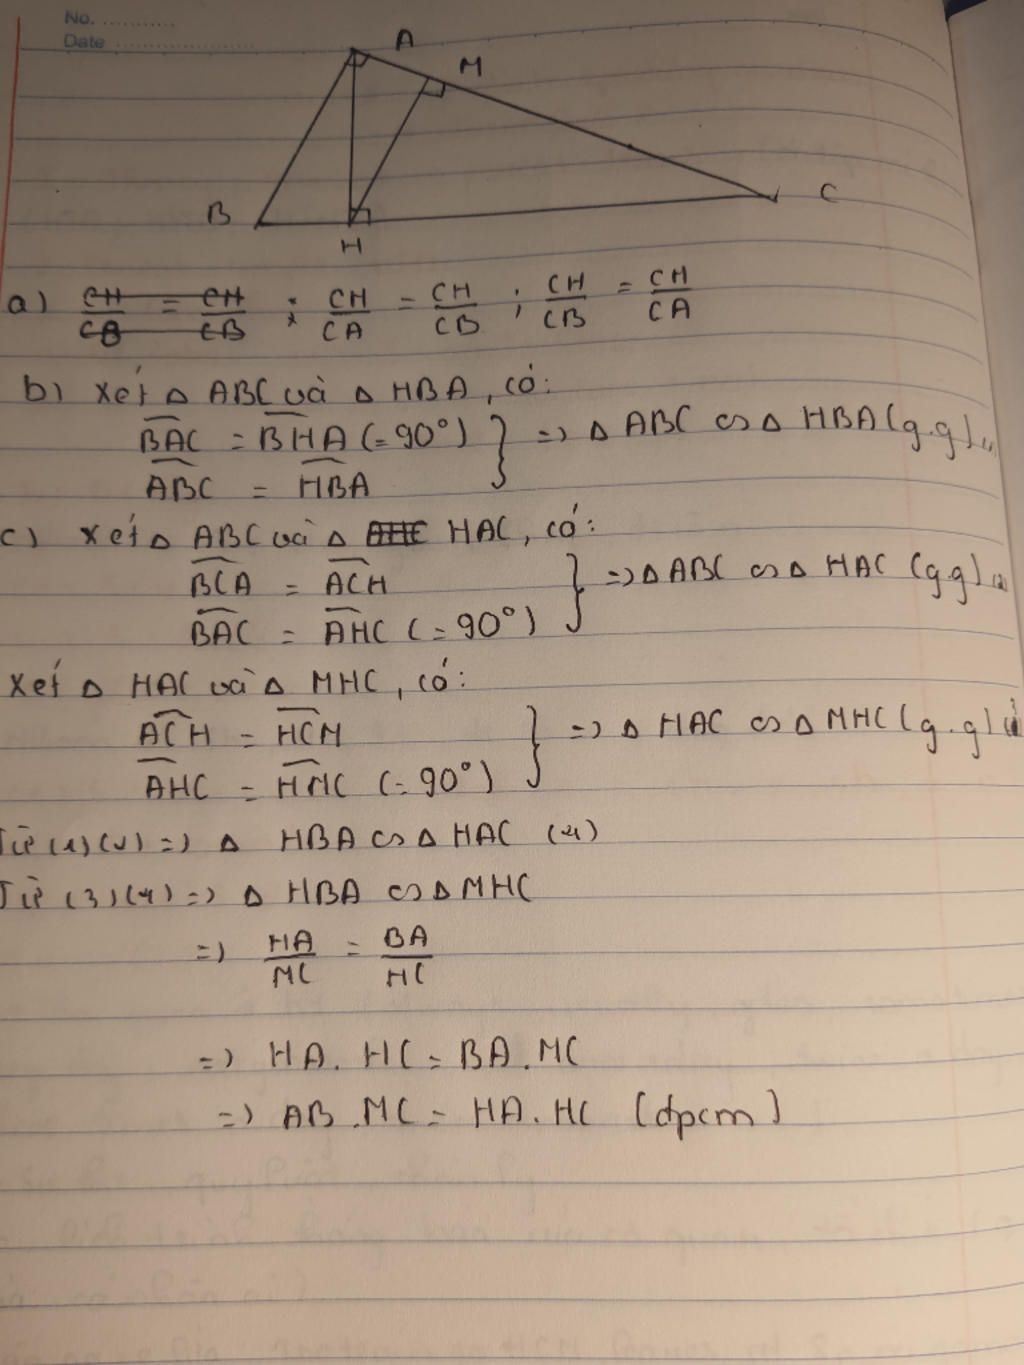 No. ............
Date ........................
A
M
B
C
H
a) CH/CB = CH/CB ; CH/CA = CH/CB ; CH/CB = CH/CA
b) Xét Δ ABC và Δ HBA, có:
BAC = BHA (= 90°) } => Δ ABC ∽ Δ HBA (g.g) (1)
ABC = HBA
c) Xét Δ ABC và Δ AHC HAC, có:
BCA = ACH } => Δ ABC ∽ Δ HAC (g.g) (2)
BAC = AHC (= 90°)
Xét Δ HAC và Δ MHC, có:
ACH = HCM } => Δ HAC ∽ Δ MHC (g.g)
AHC = HMC (= 90°)
Từ (1) (2) => Δ HBA ∽ Δ HAC (4)
Từ (3) (4) => Δ HBA ∽ Δ MHC
=> HA/MC = BA/HC
=> HA . HC = BA . MC
=> AB . MC = HA . HC (đpcm)